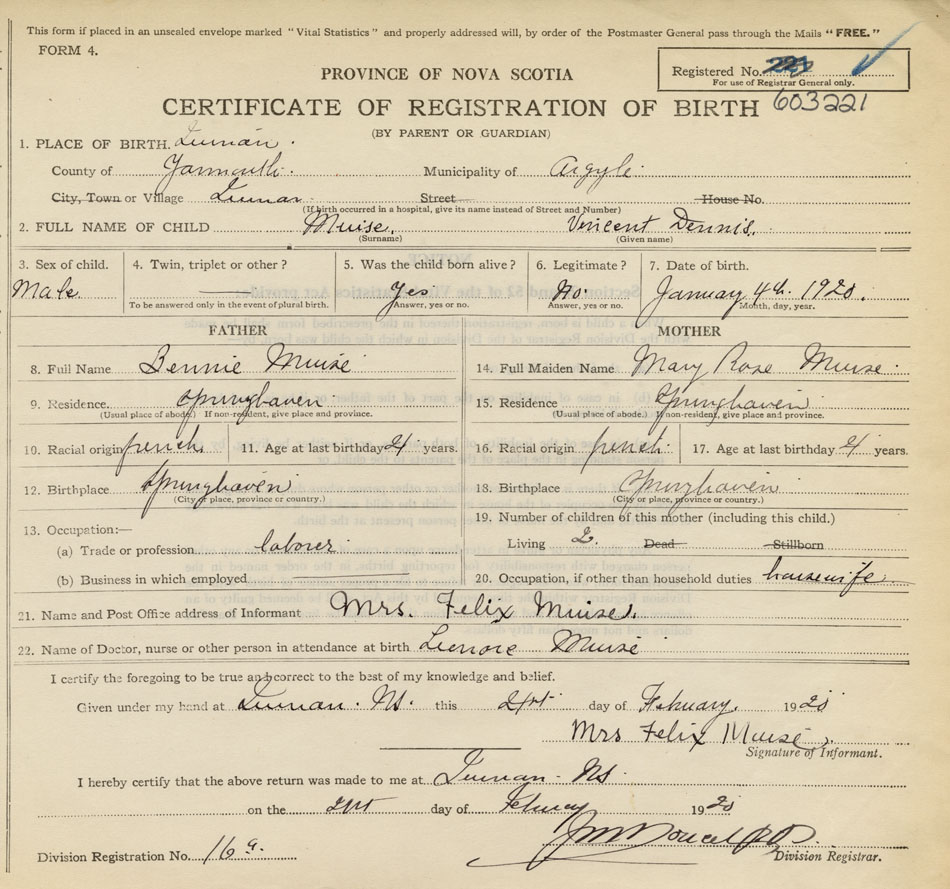 This form if placed in an unsealed envelope marked "Vital Statistics" and properly addressed will, by order of the Postmaster General pass through the Mails "FREE."
FORM 4.
PROVINCE OF NOVA SCOTIA
Registered No. 221
For use of Registrar General only.
CERTIFICATE OF REGISTRATION OF BIRTH 603221
(BY PARENT OR GUARDIAN)
1. PLACE OF BIRTH.
County of Yarmouth. Municipality of Argyle.
City, Town or Village Street House No.
(If birth occurred in a hospital, give its name instead of Street and Number)
2. FULL NAME OF CHILD Muise, Vincent Dennis.
(Surname) (Given name)
3. Sex of child. 4. Twin, triplet or other? 5. Was the child born alive? 6. Legitimate? 7. Date of birth.
Male. Yes No. January 4th. 1920.
To be answered only in the event of plural birth. Answer, yes or no. Answer, yes or no. Month, day, year.
FATHER MOTHER
8. Full Name Bennie Muise 14. Full Maiden Name Mary Rose Muise
9. Residence. Springhaven 15. Residence Springhaven
(Usual place of abode) If non-resident, give place and province. (Usual place of abode.) If non-resident, give place and province.
10. Racial origin french. 11. Age at last birthday years. 16. Racial origin french. 17. Age at last birthday years.
12. Birthplace Springhaven 18. Birthplace Springhaven
(City or place, province or country.) (City or place, province or country.)
13. Occupation:— 19. Number of children of this mother (including this child.)
(a) Trade or profession laborer Living 2. Dead Stillborn
(b) Business in which employed 20. Occupation, if other than household duties housewife
21. Name and Post Office address of Informant Mrs. Felix Muise.
22. Name of Doctor, nurse or other person in attendance at birth Muise
I certify the foregoing to be true and correct to the best of my knowledge and belief.
Given under my hand at NS. this 21st day of February. 1920
Mrs Felix Muise.
Signature of Informant.
I hereby certify that the above return was made to me at NS
on the 21st day of February 1920
Division Registration No. 16a. Division Registrar.